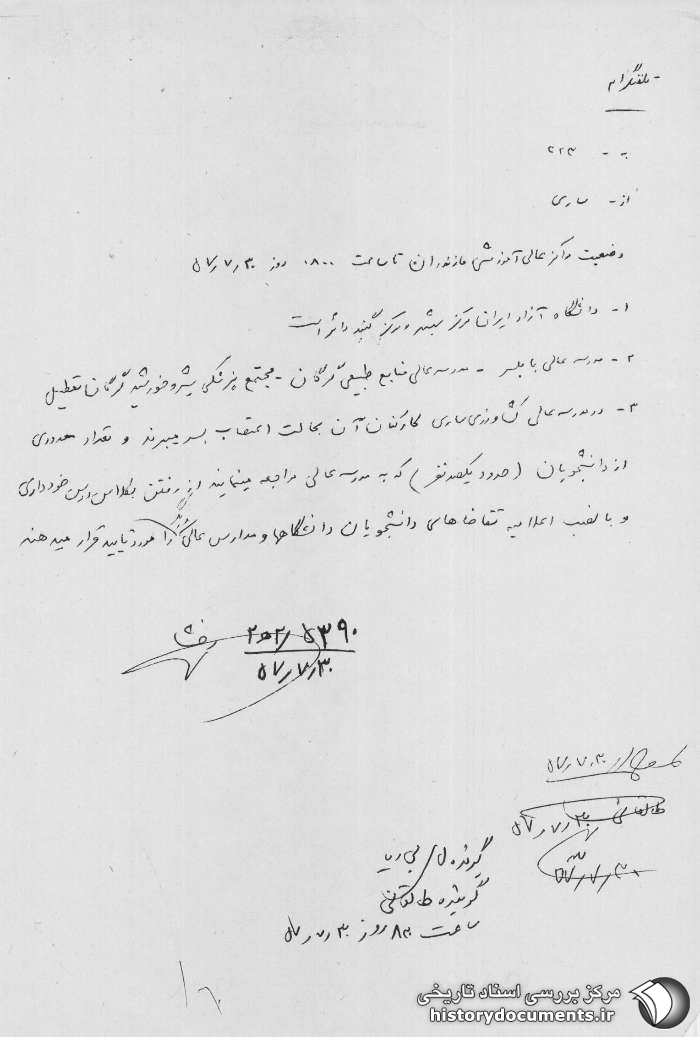 - تلفنگرام
به - ۲۲۳
از - ساری
وضعیت مراکز عالی آموزشی مازندران تا ساعت ۰۸۰۰ روز ۵۷٫۷٫۳۰
۱- دانشگاه آزاد ایران مرکز بهشهر و مرکز گنبد دائر است
۲- مدرسه عالی بابلسر - مدرسه عالی منابع طبیعی گرگان - مجتمع پزشکی شیر و خورشید گرگان تعطیل
۳- در مدرسه عالی کشاورزی ساری کارکنان آن بحالت اعتصاب بسر میبرند و تعداد معدودی
از دانشجویان (حدود یکصد نفر) که به مدرسه عالی مراجعه مینمایند از رفتن بکلاس درس خودداری
و با نصب اعلامیه تقاضاهای دانشجویان دانشگاهها و مدارس عالی را مورد تایید قرار میدهند
۵۳۹۰
۵۷٫۷٫۳۰
۵۷٫۷٫۳۰
طالقانی
۵۷٫۷٫۳۰
۵۷٫۷٫۳۰
گیرنده
گوینده طالقانی
ساعت ۸۳۰ روز ۵۷٫۷٫۳۰
مرکز بررسی اسناد تاریخی
historydocuments.ir